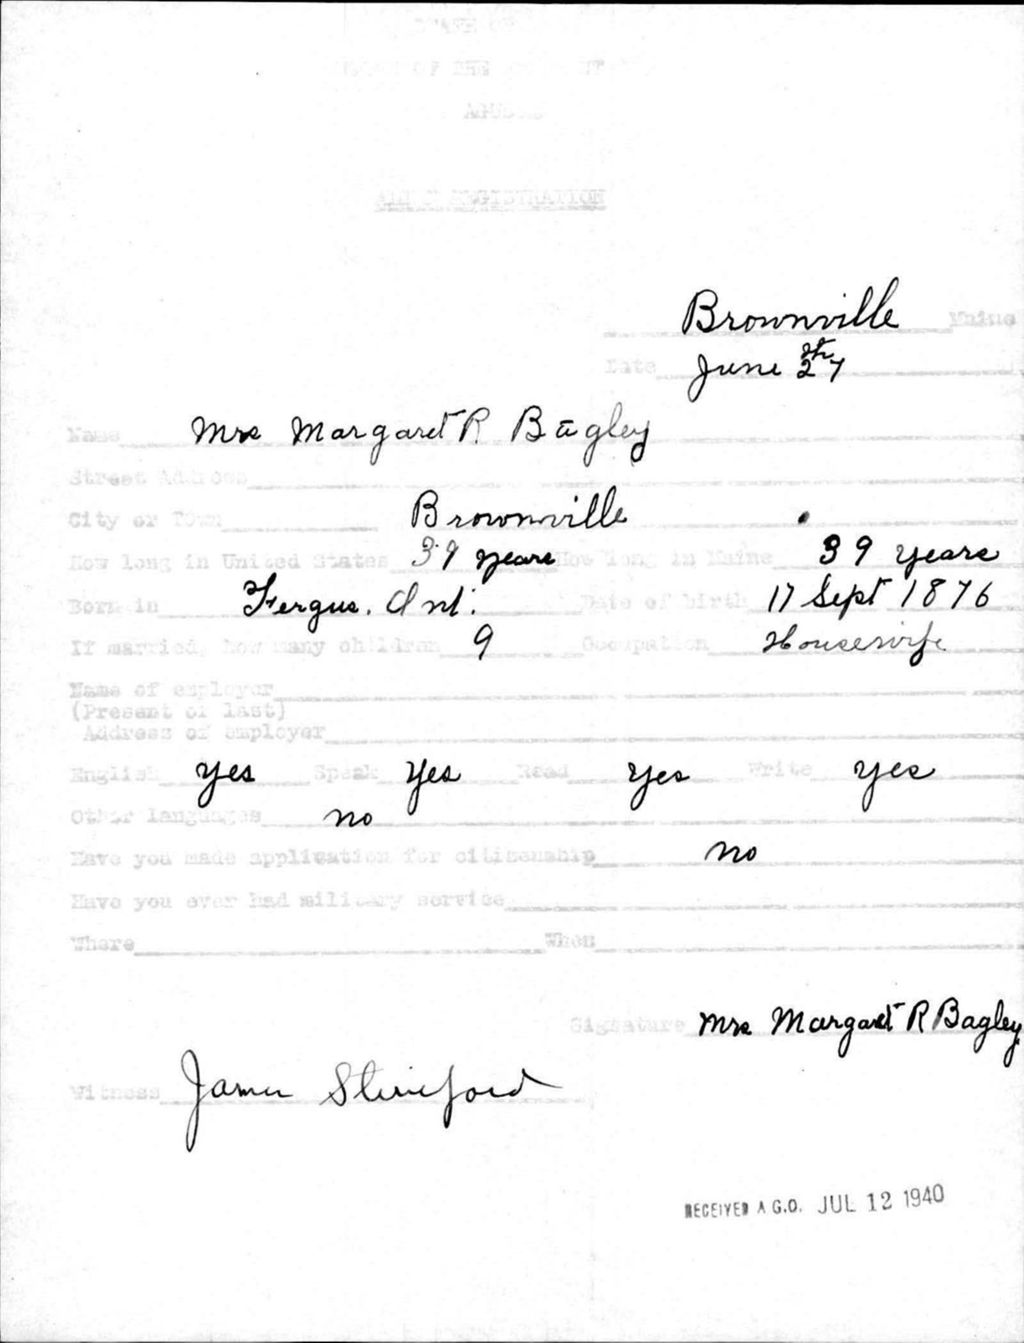 STATE OF
OF THE
ALIEN REGISTRATION
Brownville Maine
Date June 27th
Name Mrs Margaret R Bagley
Street Address
City or Town Brownville
How long in United States 39 years How long in Maine 39 years
Born in Fergus. Ont. Date of birth 17 Sept 1876
If married, how many children 9 Occupation Housewife
Name of employer
(Present or last)
Address of employer
English yes Speak yes Read yes Write yes
Other languages no
Have you made application for citizenship no
Have you ever had military service
Where When
Signature Mrs Margaret R Bagley
Witness James
RECEIVED A.G.O. JUL 12 1940